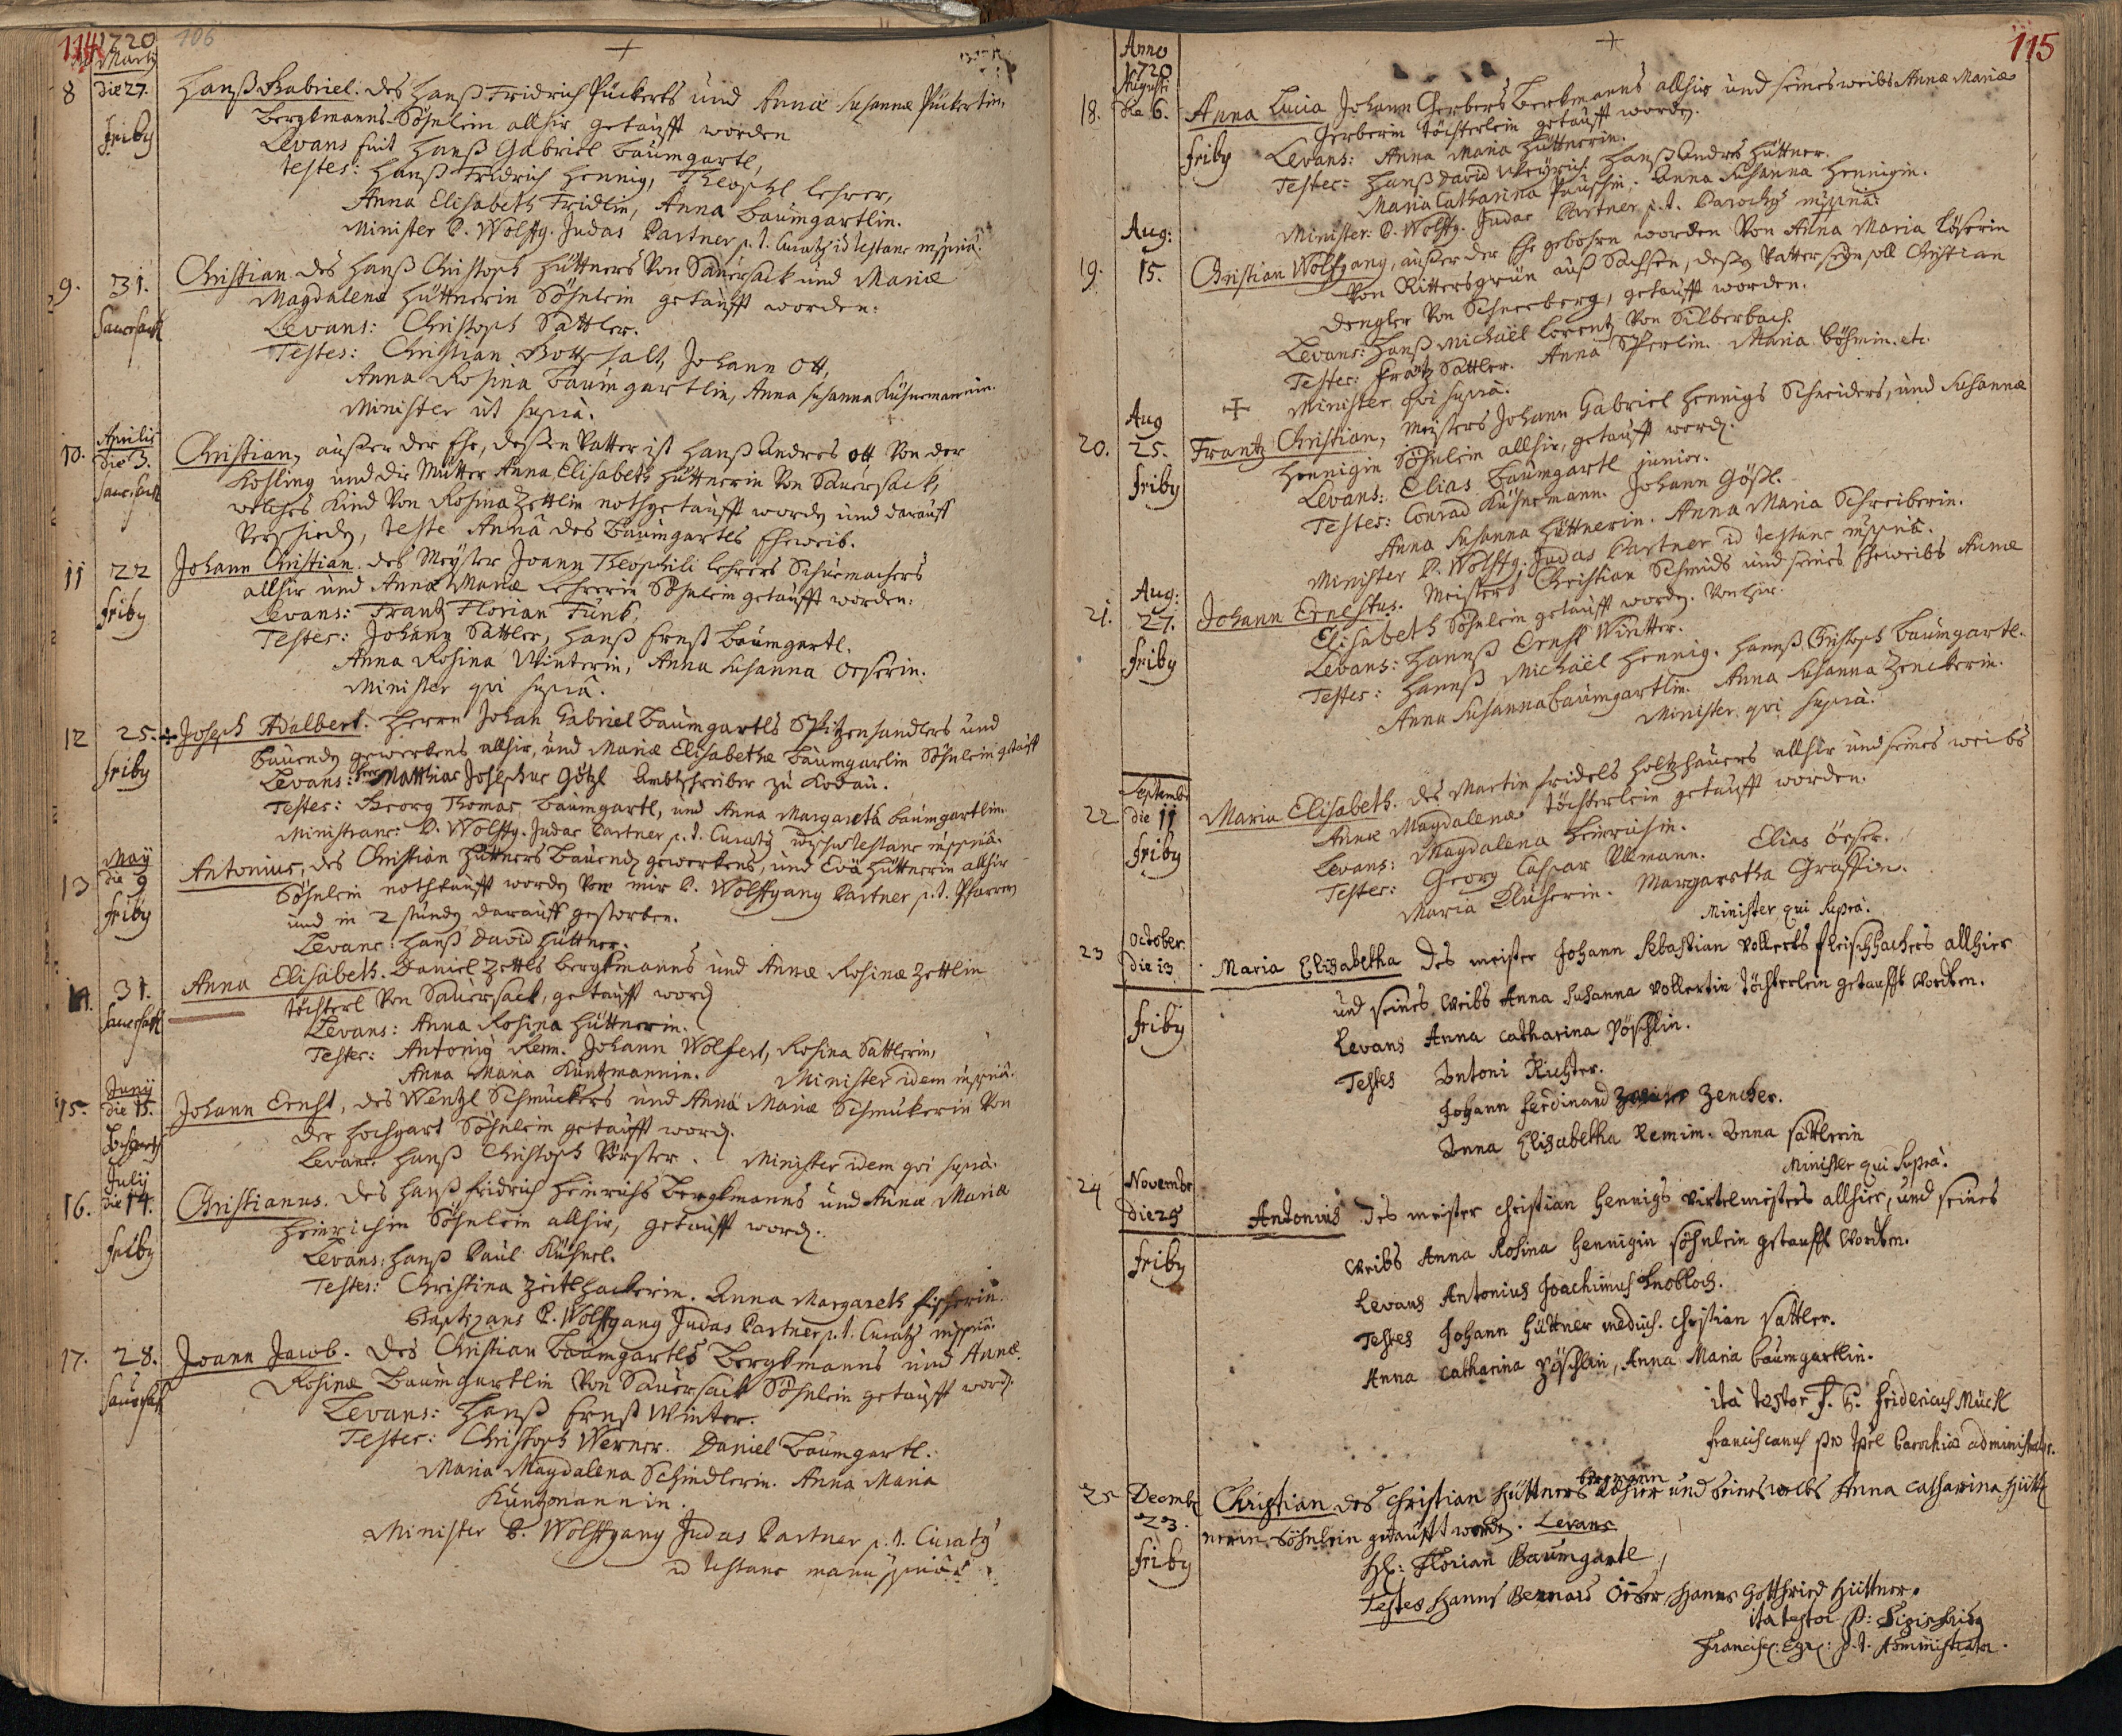 114 1720 106
Martij
8 die 27. Hanß Gabriel. des Hanß Fridrich Pückerts und Annæ Susannæ Pückertin,
Bergkmanns Söhnlein allhir getaufft worden
friby Levans fuit Hanß Gabriel Baumgartl,
testes: Hanß Fridrich Hennig, Theophil Lehrer,
Anna Elisabeth Fridlin, Anna Baumgartlin.
Minister P. Wolffg. Judas Partner p. t. Curatq id testans mppriâ.
9. 31. Christian des Hanß Christoph Hüttners von Sauersack und Mariæ
Sauersack Magdalenæ Hüttnerin Söhnlein getaufft worden:
Levans: Christoph Sattler.
Testes: Christian Gottschalt, Johann Ott,
Anna Rosina Baumgartlin, Anna Susanna Kühnemannin.
Minister ut suprà.
Aprilis
10. die 3. Christian, außer der Ehe, deßen Vatter ist Hanß Andres Ott von der
Sauersack Kohling und die Mutter Anna Elisabeth Hüttnerin von Sauersack,
welches Kind von Rosina Zettlin nothgetaufft worden und darauff
verschieden, teste Annâ des Baumgartls Eheweib.
11 22 Johann Christian. des Meyster Joann Theophili Lehrers Schumachers
friby allhir und Annæ Mariæ Lehrerin Söhnlein getaufft worden:
Levans: Frantz Florian Funk,
Testes: Johann Sattler, Hanß Ernst Baumgartl.
Anna Rosina Winterin, Anna Susanna Oeserin.
Minister qvi suprà.
12 25. + Joseph Adalbert. Herrn Johan Gabriel Baumgartls Spitzenhandlers und
friby Bauenden gewerkens allhir, und Mariæ Elisabethæ Baumgartlin Söhnlein getaufft
Levans: Herr Matthias Josephus Götzl Ambtschreiber zu Kodau.
Testes: Georg Thomas Baumgartl, und Anna Margareta Baumgartlin.
Ministrans: P. Wolffg. Judas Partner p. t. Curatq testans mppriâ.
May
13 die 9 Antonius, des Christian Hüttners Bauenden gewerkens, und Evæ Hüttnerin allhir
friby Söhnlein nothtaufft worden von mir P. Wolffgang Partner p. t. Pfarrern
und in 2 stunden darauff gestorben.
Levans: Hanß David Hüttner.
14. 31. Anna Elisabeth. Daniel Zettls Bergkmanns und Annæ Rosinæ Zettlin
Sauersack töchterl von Sauersack, getaufft worden
Levans: Anna Rosina Hüttnerin.
Testes: Antonig Rem. Johann Wolfert, Rosina Sattlerin,
Anna Maria Kuntzmannin. Minister idem mppriâ.
Junij
15. die 15. Johann Ernst, des Wentzl Schmuckers und Annæ Mariæ Schmukerin von
Hochgart der Hochgart Söhnlein getaufft worden.
Levans: Hanß Christoph Vörster. Minister idem qvi suprà.
Julij
16. die 14. Christianus. des Hanß Fridrich Heinrichs Bergkmanns und Annæ Mariæ
friby Heinrichin Söhnlein allhir, getaufft worden.
Levans: Hanß Paul Kühnel.
Testes: Christina Zeitlhackerin. Anna Margareth Fischerin.
Baptizans P. Wolffgang Judas Partner p. t. Curatq mppriâ.
17. 28. Joann Jacob. des Christian Baumgartls Bergkmanns und Annæ
Sauersack Rosinæ Baumgartlin von Sauersack Söhnlein getaufft worden.
Levans: Hanß Ernst Winter.
Testes: Christoph Werner. Daniel Baumgartl.
Maria Magdalena Schindlerin. Anna Maria
Kuntzmannin.
Minister P. Wolffgang Judas Partner p. t. Curatq
id testans manu ppriâ
115
Anno
1720
Augusti
18. die 6. Anna Lucia Johann Gerbers Bergkmanns allhir und seines weibs Annæ Mariæ
Gerberin töchterlein getaufft worden.
friby Levans: Anna Maria Hüttnerin.
Testes: Hanß David Weyrich. Hanß Andres Hüttner.
Maria Catharina Pauschin. Anna Susanna Hennigin.
Minister. P. Wolffg. Judas Partner p. t. Parochq mppriâ.
Aug:
19. 15. Christian Wolffgang, außer der Ehe gebohrn worden von Anna Maria Löserin
von Rittersgrün auß Sachsen, deßen Vatter seyn soll Christian
Dengler von Schneeberg, getaufft worden.
Levans: Hanß Michäel Lorentz von Silberbach.
Testes: Frantz Sattler. Anna Maria Böhmin. etc.
+ Minister qvi suprà.
Aug
20. 25. Frantz Christian, Meisters Johann Gabriel Hennigs Schneiders, und Susannæ
Hennigin Söhnlein allhir, getaufft worden.
friby Levans: Elias Baumgartl junior.
Testes: Conrad Kühnemann. Johann Gößl.
Anna Susanna Hüttnerin. Anna Maria Schreiberin.
Minister P. Wolffg: Judas Partner id testans mppriâ.
Aug:
21. 27. Johann Ernestus. Meisters Christian Schmids und seines Eheweibs Annæ
Elisabeth Söhnlein getaufft worden. von hir.
friby Levans: Hannß Ernst Wintter.
Testes: Hannß Michäel Hennig. Hannß Christoph Baumgartl.
Anna Susanna Baumgartlin. Anna Susanna Zenckerin.
Minister qvi suprà.
September
22 die 11 Maria Elisabeth. des Martin Fridels Holtzhauers allhir und seines weibs
Annæ Magdalenæ töchterlein getaufft worden.
friby Levans: Magdalena Heinrichin.
Testes: Georg Caspar Ullmann. Elias Öeser.
Maria Margaretha Grassin.
Minister qui suprà.
October.
23 die 13 Maria Elisabetha des meister Johann Sebastian Vollerts fleischhackers allhier
und seines weibs Anna Susanna Vollertin töchterlein getaufft worden.
friby Levans Anna Catharina Pöschlin.
Testes Antoni Richter.
Johann Ferdinand Zencker.
Anna Elisabetha Remin. Anna Sattlerin
Minister qui suprà.
24 Novembr
die 25 Antonius des meister Christian Hennigs virtelmeisters allhier, und seines
weibs Anna Rosina Hennigin söhnlein getaufft worden.
friby Levans Antonius Joachimus Knobloch.
Testes Johann Hüttner medius. Christian Sattler.
Anna Catharina Pöschlin, Anna Maria Baumgartlin.
ità testor F. P. Fridericus Mückl
Franciscanus pro tpre Parochiæ administrator.
25 Decembr Christian des Christian Hüttners bergmann alhier und seines weibs Anna Catharina Hütt
23. nerin Söhnlein getaufft worden. Levans
friby H: Florian Baumgartl,
Testes Hanns Bernard Öeser Hanns Gottfried Hüttner.
ita testor P:
Francisc: p. t. Administrator.